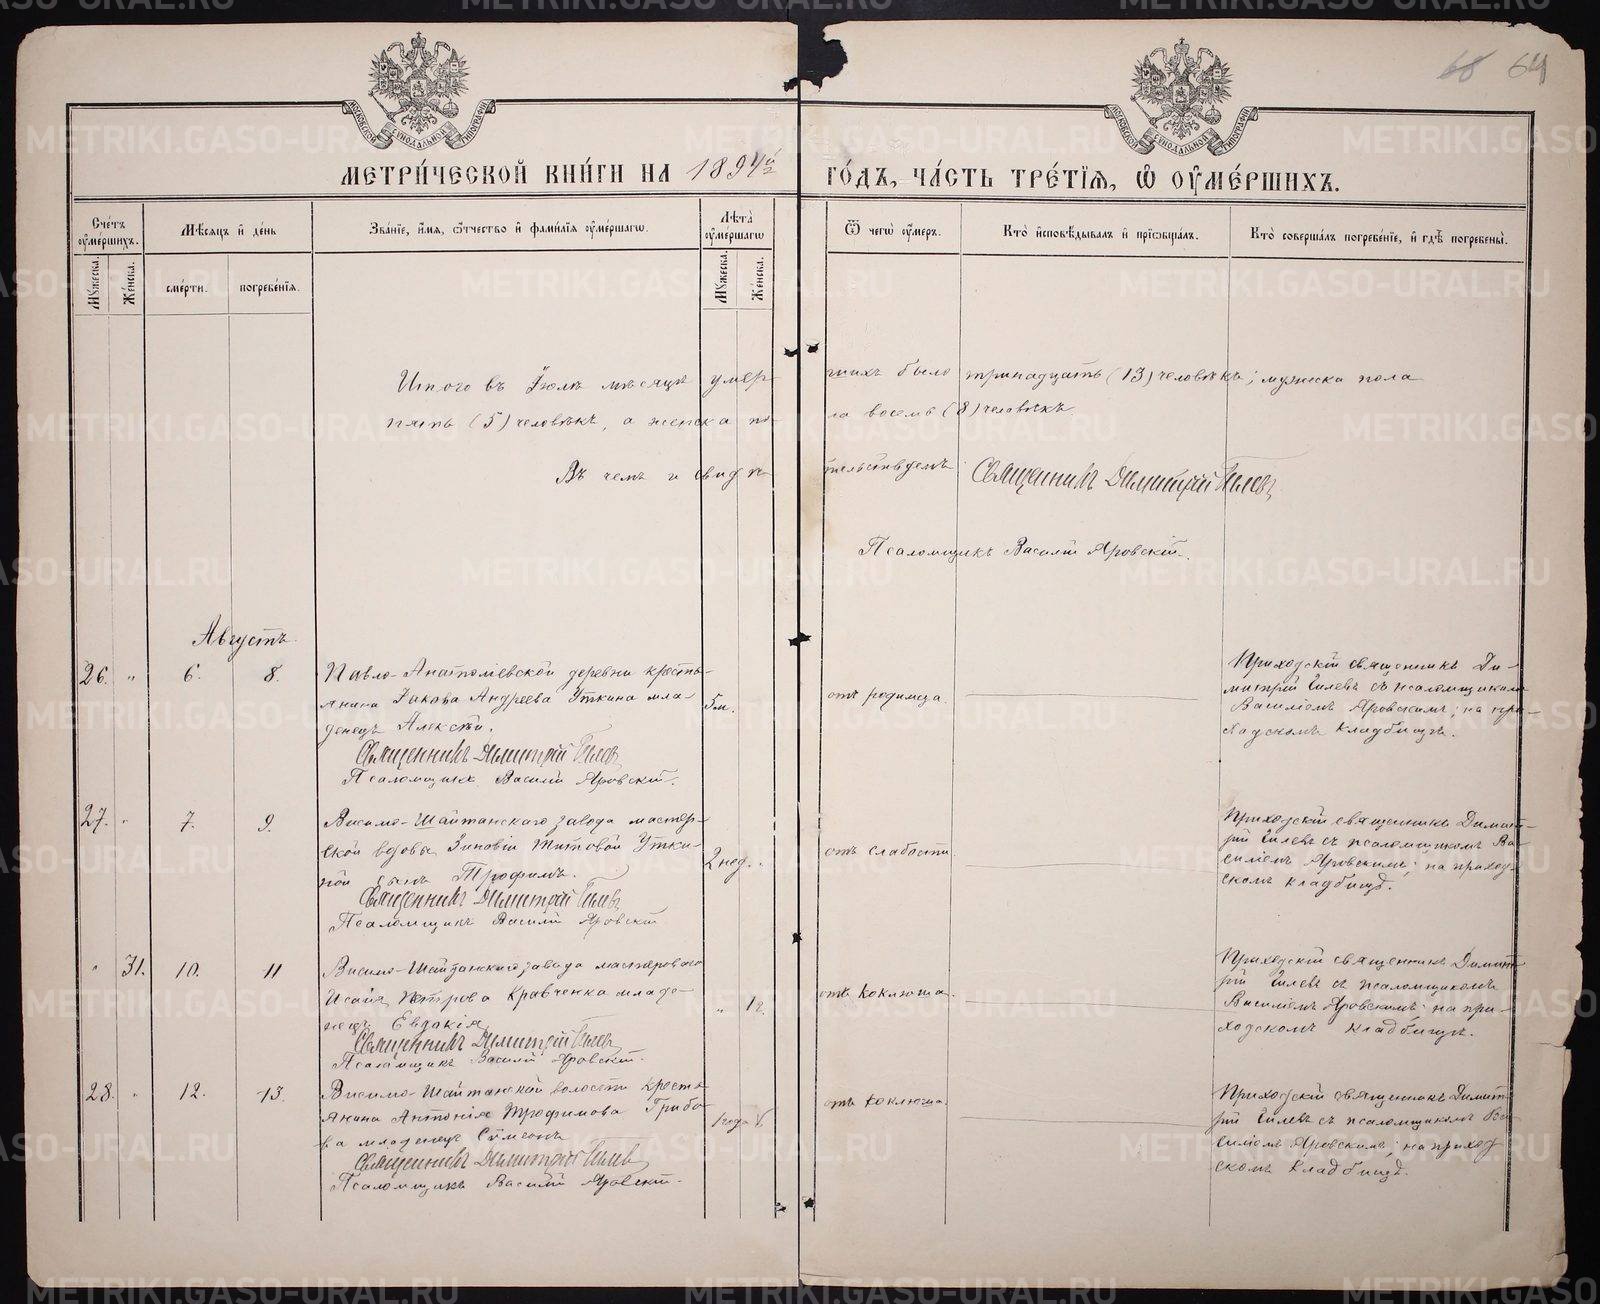 68 64
МОСКОВСКОЙ СѴНОДАЛЬНОЙ ТИПОГРАФІИ
МОСКОВСКОЙ СѴНОДАЛЬНОЙ ТИПОГРАФІИ
МЕТРИ́ЧЕСКОЙ КНИ́ГИ НА 1894й ГО́ДЪ, ЧА́СТЬ ТРЕ́ТІѦ, Ѡ҆ ОУ҆МЕ́РШИХЪ.
Сче́тъ оу҆ме́ршихъ.
Мѣ́сѧцъ и҆ де́нь
Зва́нїе, и҆́мѧ, ѻ҆́тчество и҆ фами́лїѧ оу҆ме́ршагѡ.
Лѣ́та оу҆ме́ршагѡ
Ѿ чегѡ̀ оу҆́меръ.
Кто̀ и҆сповѣ́дывалъ и҆ прїѡбща́лъ.
Кто̀ соверша́лъ погребе́нїе, и҆ гдѣ̀ погребены̀.
Мꙋ́жеска.
Же́нска.
сме́рти.
погребе́нїѧ.
Мꙋ́жеска.
Же́нска.
Итого въ Іюлѣ мѣсяцѣ умерших было тринадцать (13) человѣкъ; мужска пола
пять (5) человѣкъ, а женска пола восемь (8) человѣкъ.
Въ чемъ и свидѣтельствуемъ: Священникъ Димитрій Гилевъ
Псаломщикъ Василій Яровскій.
Августъ.
26. „ 6. 8.
Павло-Анатоліевской деревни крестьянина Іакова Андреева Уткина младенецъ Алексѣй.
Священникъ Димитрій Гилевъ
Псаломщикъ Василій Яровскій.
5м.
отъ родимца.
Приходскій священникъ Ди-
митрій Гилевъ съ псаломщикомъ
Василіемъ Яровскимъ; на при-
ходскомъ кладбищѣ.
27. „ 7. 9.
Висимо-Шайтанскаго завода мастер-
ской вдовы Зиновіи Титовой Утки-
ной сынъ Трофимъ.
Священникъ Димитрій Гилевъ
Псаломщикъ Василій Яровскій
2 нед. „
отъ слабости.
Приходскій священникъ Димит-
рій Гилевъ съ псаломщикомъ Ва-
силіемъ Яровскимъ; на приход-
скомъ кладбищѣ.
„ 31. 10. 11
Висимо-Шайтанскаго завода мастероваго
Исаіи Петрова Кравченка младе-
нецъ Евдокія
Священникъ Димитрій Гилевъ
Псаломщикъ Василій Яровскій.
„ 1г.
отъ коклюша.
Приходскій священникъ Димит-
рій Гилевъ съ псаломщикомъ
Василіемъ Яровскимъ; на при-
ходскомъ кладбищѣ.
28. „ 12. 13.
Висимо-Шайтанской волости кресть-
янина Антонія Трофимова Грибо-
ва младенецъ Сѵмеонъ
Священникъ Димитрій Гилевъ
Псаломщикъ Василій Яровскій.
1 года
отъ коклюша.
Приходскій священникъ Димит-
рій Гилевъ съ псаломщикомъ Ва-
силіемъ Яровскимъ; на приход-
скомъ кладбищѣ.
METRIKI.GASO-URAL.RU